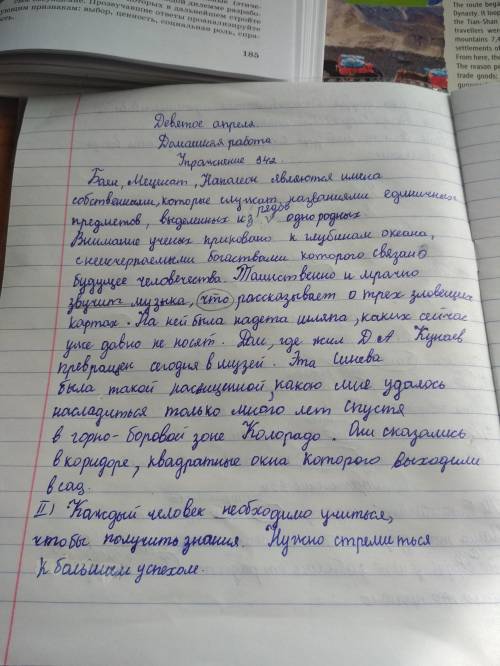 ующим признакам: выбор, ценность, социальная роль, спра-
185
The route bega
Dynasty. It loop
the Tian-Shan
travellers wer
mountains 7,4
settlements of
From here, the
The reason pe
trade goods;
Девятое апреля.
Домашняя работа
Упражнение 342.
Баян, Мецисат, Наполеон являются имена
собственными, которые служат названиями единичных
предметов, выделенных из рядов однородных
Внимание ученых приковано к глубинам океана,
с неисчерпаемыми богаствами которого связано
будущее человечества. Таинственно и мрачно
звучит музыка, что, рассказывает о трех зловещих
картах. На ней была надета шляпа, каких сейчас
уже давно не носят. Дом, где жил Д А. Кунаев
превращен сегодня в музей. Эта синева
была такой насыщенной, какою мне удалось
насладиться только много лет спустя
в горно-боровой зоне Колорадо. Они сказались
в коридоре, квадратные окна которого выходили
в сад.
II) Каждый человек необходимо учиться,
чтобы получить знания. Нужно стремиться
к большим успехом.